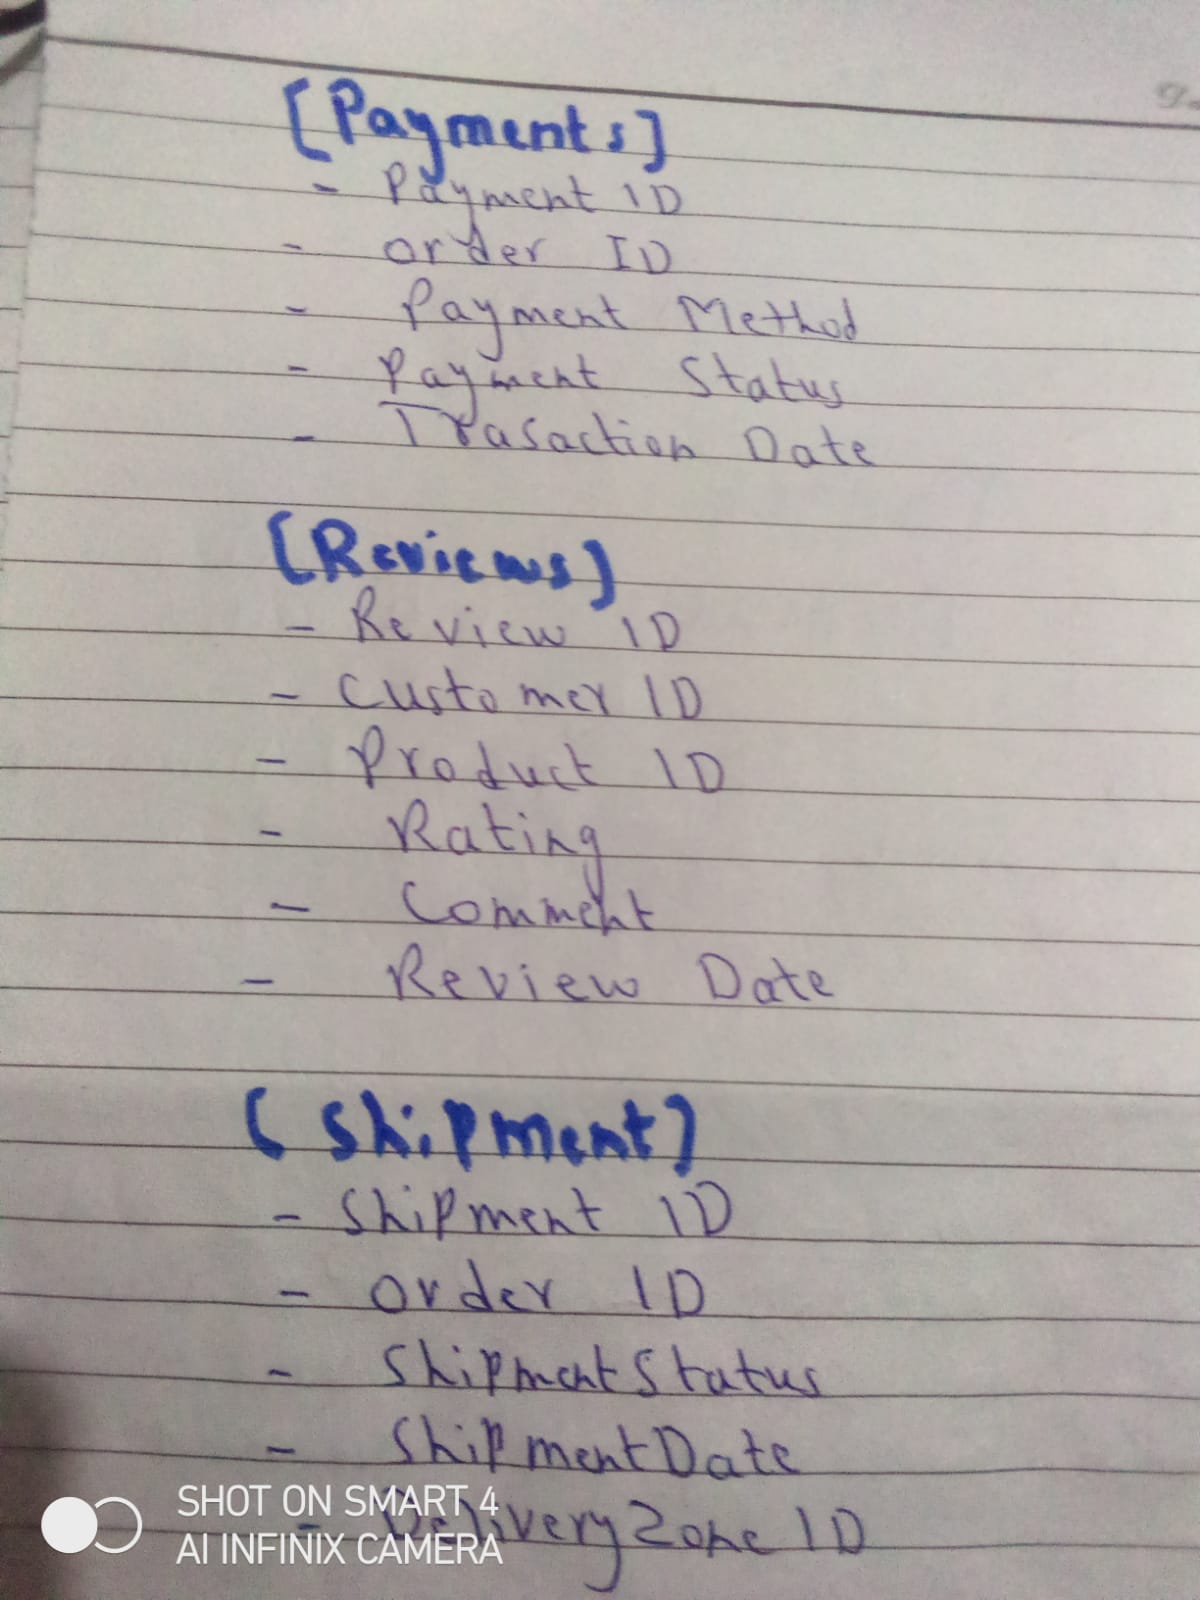 [Payments]
- Payment ID
- order ID
- Payment Method
- Payment Status
- Trasaction Date
[Reviews]
- Review ID
- Customer ID
- Product ID
- Rating
- Comment
- Review Date
[Shipment]
- Shipment ID
- order ID
- ShipmentStatus
- ShipmentDate
- DeliveryZone ID
SHOT ON SMART 4
AI INFINIX CAMERA